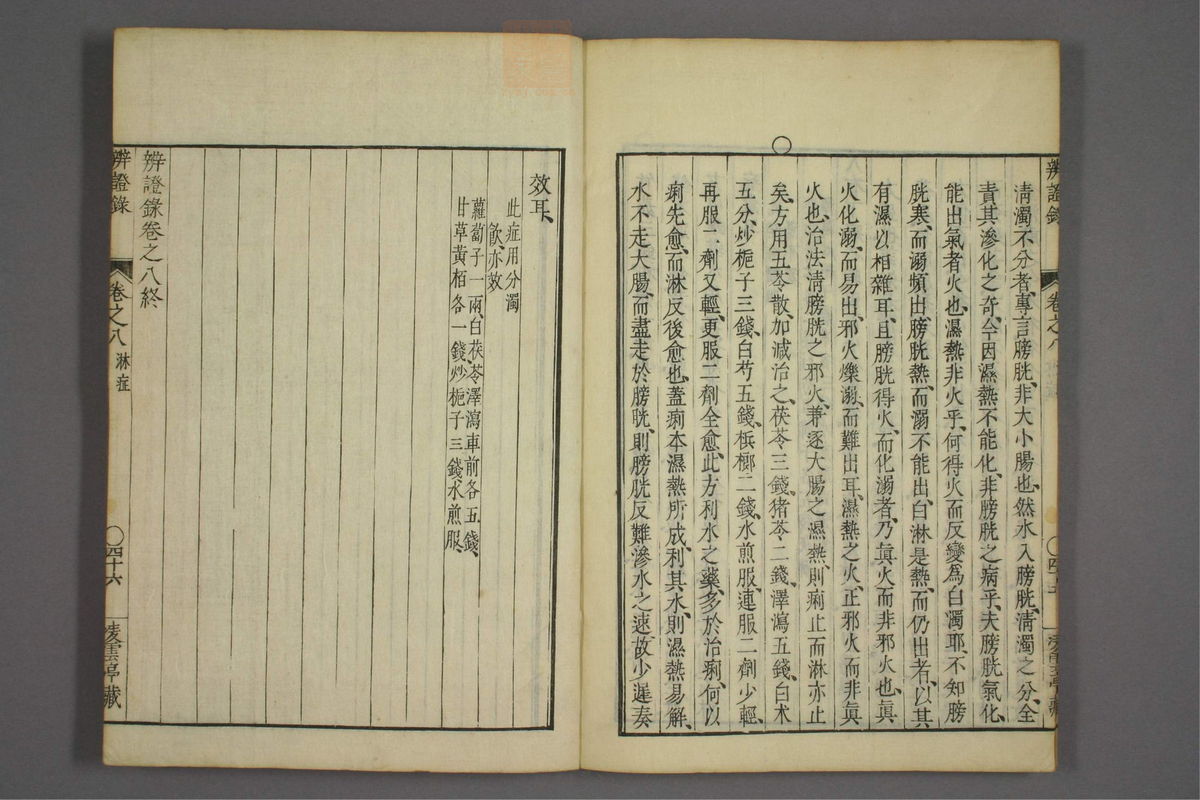 辨證錄
卷之八
清濁不分者、專言膀胱、非大小腸也、然水入膀胱、清濁之分、全
責其滲化之奇、今因濕熱不能化、非膀胱之病乎、夫膀胱氣化、
能出氣者火也、濕熱非火乎、何得火而反變為白濁耶、不知膀
胱寒、而溺頻出、膀胱熱、而溺不能出、白淋是熱、而仍出者、以其
有濕以相雜耳、且膀胱得火、而化溺者、乃真火而非邪火也、真
火化溺、而易出、邪火爍溺、而難出耳、濕熱之火、正邪火而非真
火也、治法清膀胱之邪火、兼逐大腸之濕熱、則痢止而淋亦止
矣、方用五苓散、加減治之、茯苓三錢、猪苓二錢、澤瀉五錢、白术
五分、炒梔子三錢、白芍五錢、檳榔二錢、水煎服、連服二劑少輕、
再服二劑又輕、更服二劑全愈、此方利水之藥、多於治痢、何以
痢先愈、而淋反後愈也、蓋痢本濕熱所成、利其水、則濕熱易解、
水不走大腸、而盡走於膀胱、則膀胱反難滲水之速、故少遲奏
效耳、
此症用分濁
飲、亦效
蘿蔔子一兩、白茯苓澤瀉車前各五錢、
甘草黃栢各一錢、炒梔子三錢、水煎服、
辨證錄卷之八終
辨證錄
卷之八
淋症
四十六
凌雲亭藏